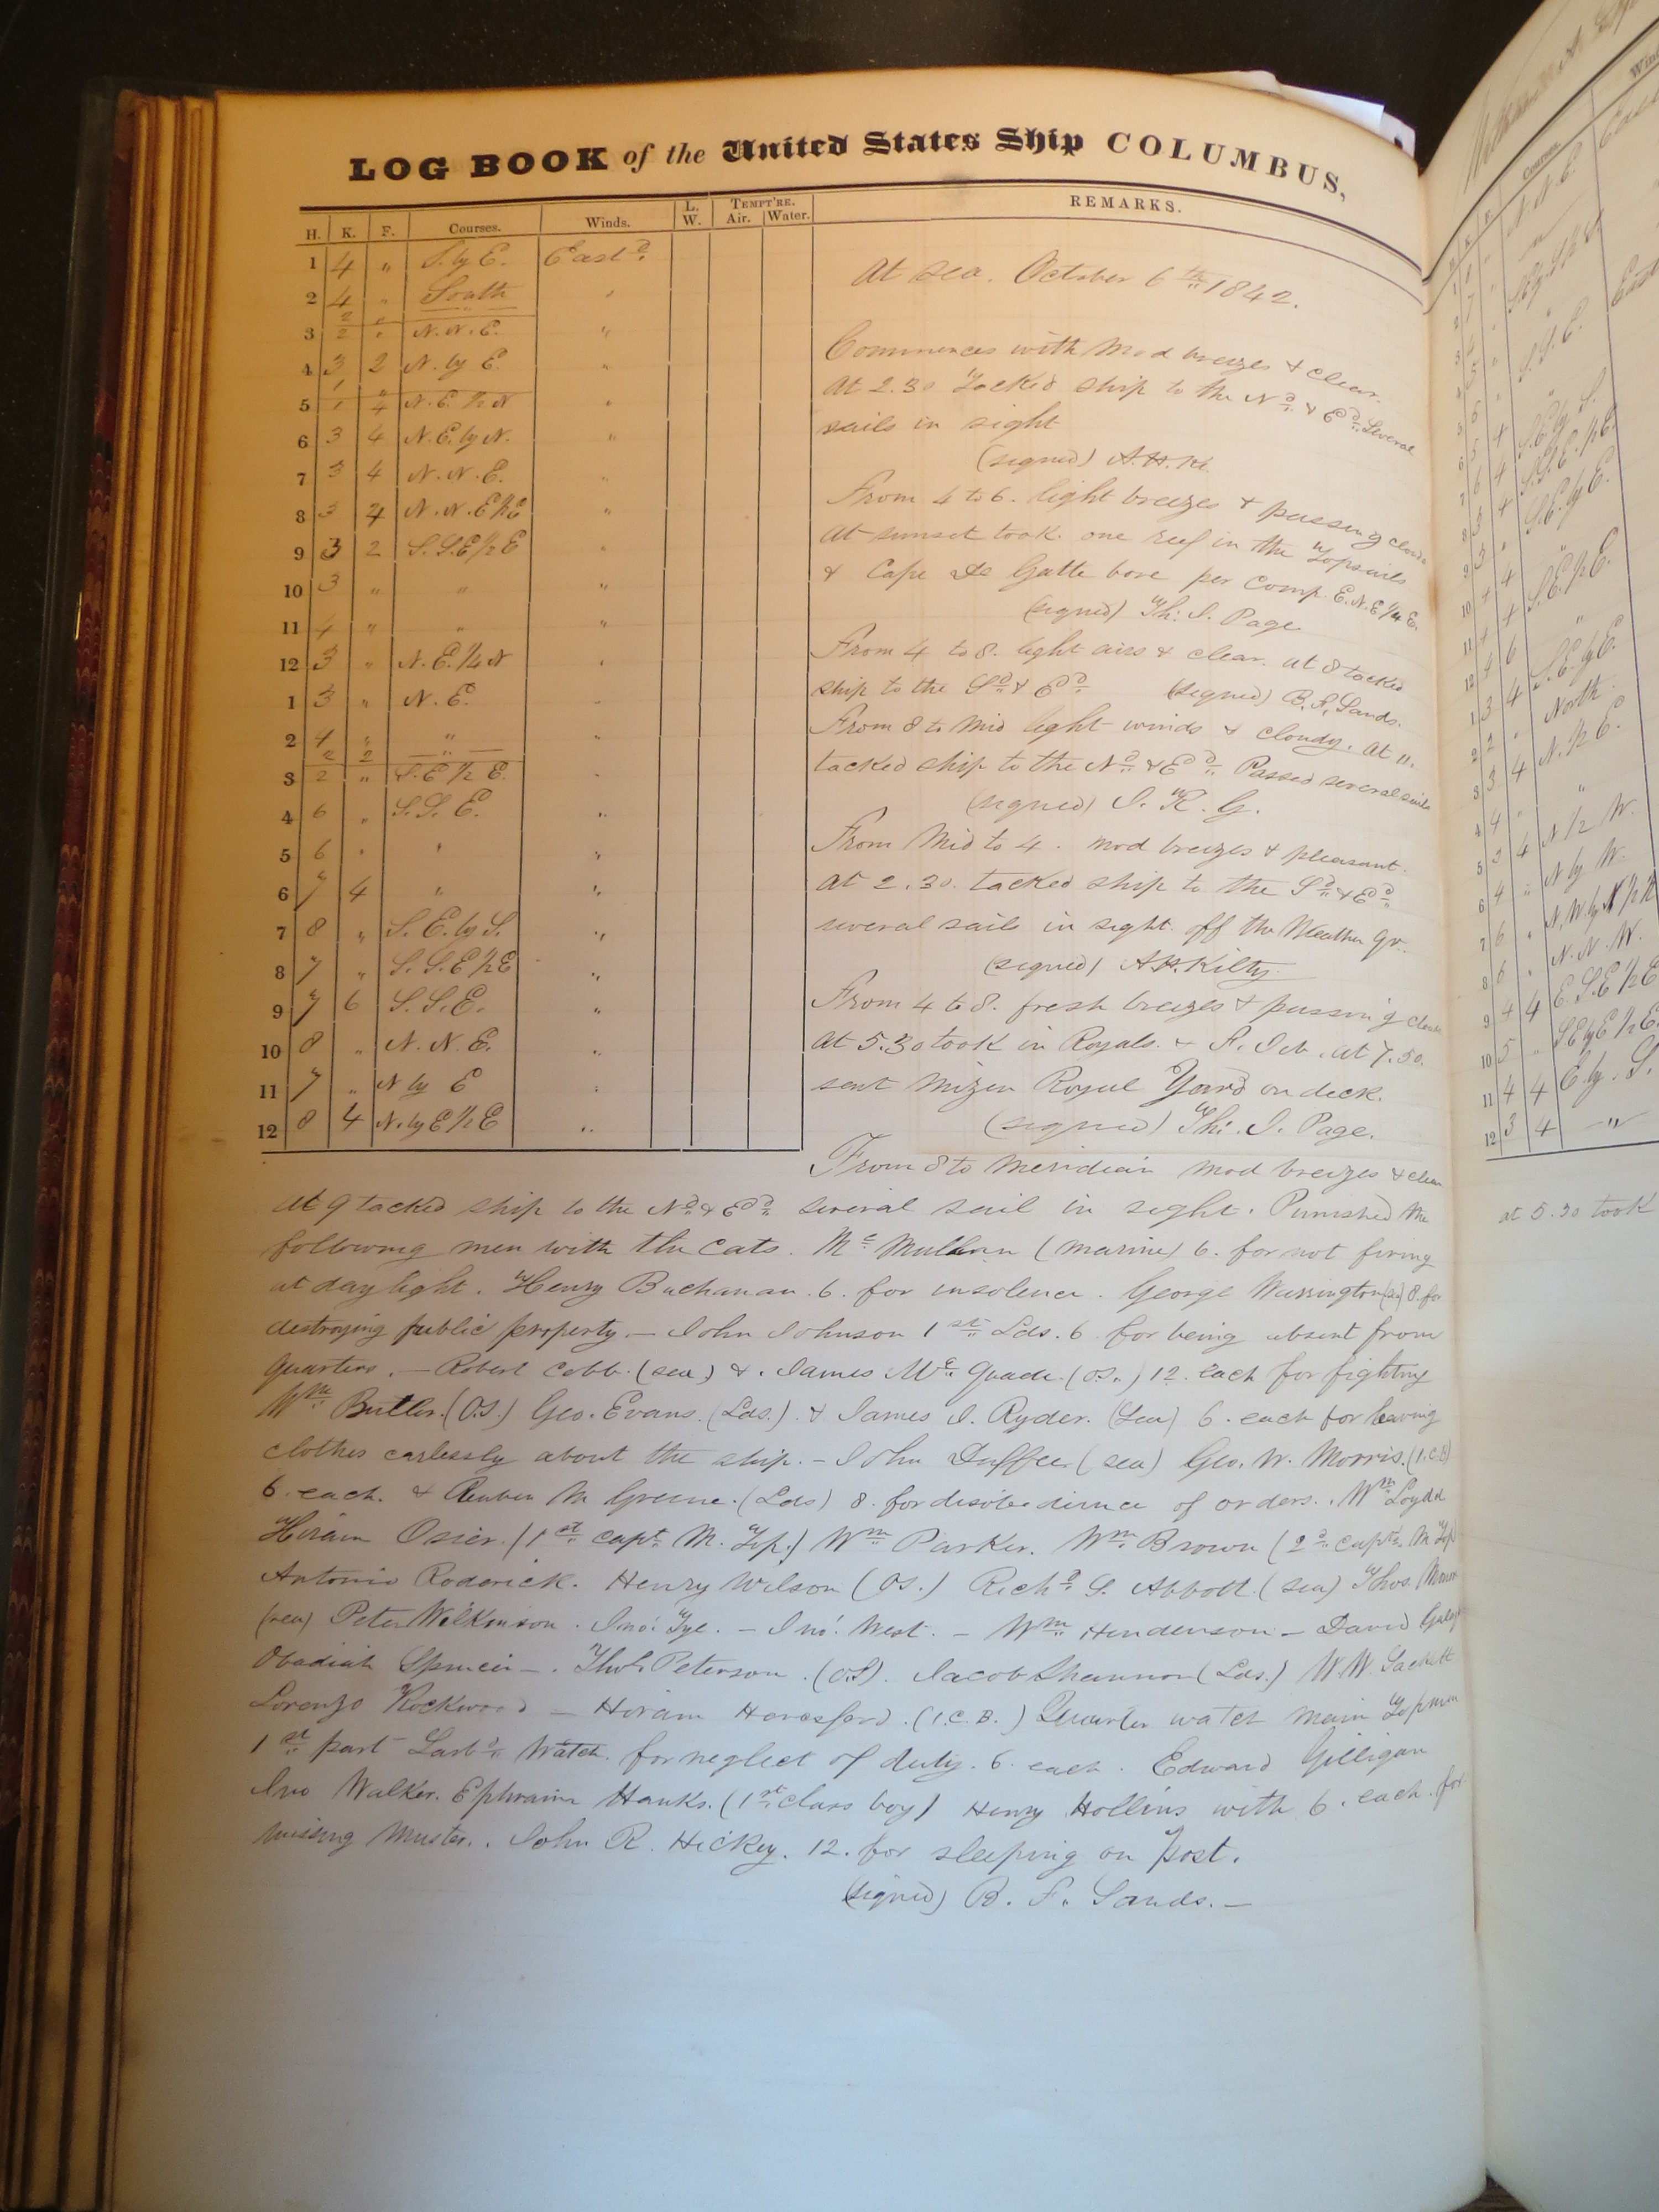 LOG BOOK of the United States Ship COLUMBUS,
H. K. F. Courses. Winds. L. W. TEMPT'RE. Air. Water. REMARKS.
1 4 " S. by E. East d
2 4 " South "
2 "
3 2 " N. N. E. "
4 3 2 N. by E. "
1 "
5 1 4 N. E. 1/2 N "
6 3 4 N. E. by N. "
7 3 4 N. N. E. "
8 3 4 N. N. E 1/2 E "
9 3 2 S. S. E 1/2 E "
10 3 " " "
11 4 " " "
12 3 " N. E. 1/4 N "
1 3 " N. E. "
2 4 " " "
2 2 "
3 2 " S. E 1/2 E. "
4 6 " S. S. E. "
5 6 " " "
6 7 4 " "
7 8 " S. E. by S. "
8 7 " S. S. E 1/2 E "
9 7 6 S. S. E. "
10 8 " N. N. E. "
11 7 " N by E "
12 8 4 N. by E 1/2 E "
At sea. October 6th 1842.
Commences with Mod breezes & clear.
At 2.30 Tacked ship to the Nd & Ed. Several
sails in sight
(signed) A. H. K.
From 4 to 6. light breezes & passing clouds
At sunset took one reef in the Topsails
& Cape De Gatte bore per comp. E. N. E 1/4 E.
(signed) Th: J. Page
From 4 to 8. light airs & clear. at 8 tacked
ship to the Sd & Ed (signed) B. F. Sands.
From 8 to Mid light winds & cloudy. At 11.
tacked ship to the Nd & Ed. Passed several sails
(signed) J. R. G.
From Mid to 4. mod breezes & pleasant.
At 2.30. tacked ship to the Sd & Ed
several sails in sight off the Weather Qr.
(signed) A. H. Kilty.
From 4 to 8. fresh breezes & passing clouds
At 5.30 took in Royals & F. Jib. At 7.50.
sent Mizen Royal Yard on deck.
(signed) Th: J. Page.
From 8 to Meridian mod breezes & clear
At 9 tacked ship to the Nd & Ed several sail in sight. Punished the
following men with the Cats. Mc Mullen (marine) 6. for not firing
at daylight. Henry Buchanan. 6. for insolence. George Warrington (sea) 8. for
destroying public property — John Johnson 1st Lds. 6 for being absent from
quarters. — Robert Cobb. (sea) & James Mc Quade. (O.S.) 12. each for fighting
Wm Butler. (O.S.) Geo. Evans. (Lds.) & James J. Ryder. (Sea) 6. each for leaving
clothes carlessly about the ship. — John Duffee (sea) Geo. W. Morris. (1. C. B)
6. each. & Reuben M Greene. (Lds) 8. for disobedience of orders. Wm Loydd
Hiram Osier. (1st capt M. Top.) Wm Parker. Wm Brown (2d Capt M Top)
Antonio Roderick. Henry Wilson (OS.) Richd G. Abbott. (sea) Thos.
(sea) Peter Wilkinson. Jno. Tye. — Jno. West. — Wm Henderson — David
Obadiah Spencer —. Thos Peterson. (O.S). Jacob Shannon (Lds.) W. W. Sackett
Lorenzo Rockwood — Hiram (1. C. B.) Quarter watch main Topmen
1st part Larbd Watch. for neglect of duty. 6. each. Edward Gilligan
Jno Walker. Ephraim Hanks. (1st class boy) Henry Hollins with 6. each. for
missing Muster. John R. Hickey. 12. for sleeping on Post.
(signed) B. F. Sands. —
at 5.30 took